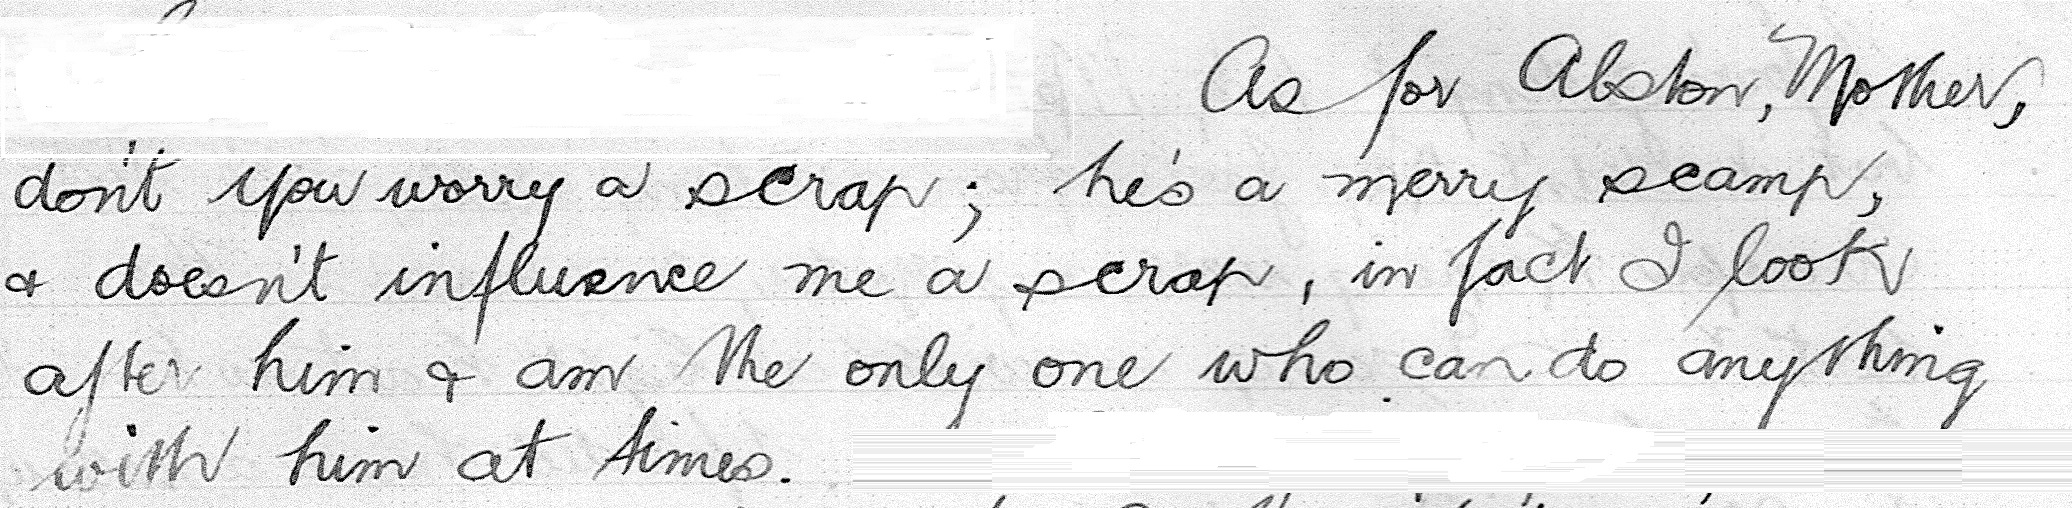 As for Alston, Mother,
don't you worry a scrap; he's a merry scamp,
& doesn't influence me a scrap, in fact I look
after him & am the only one who can do anything
with him at times.